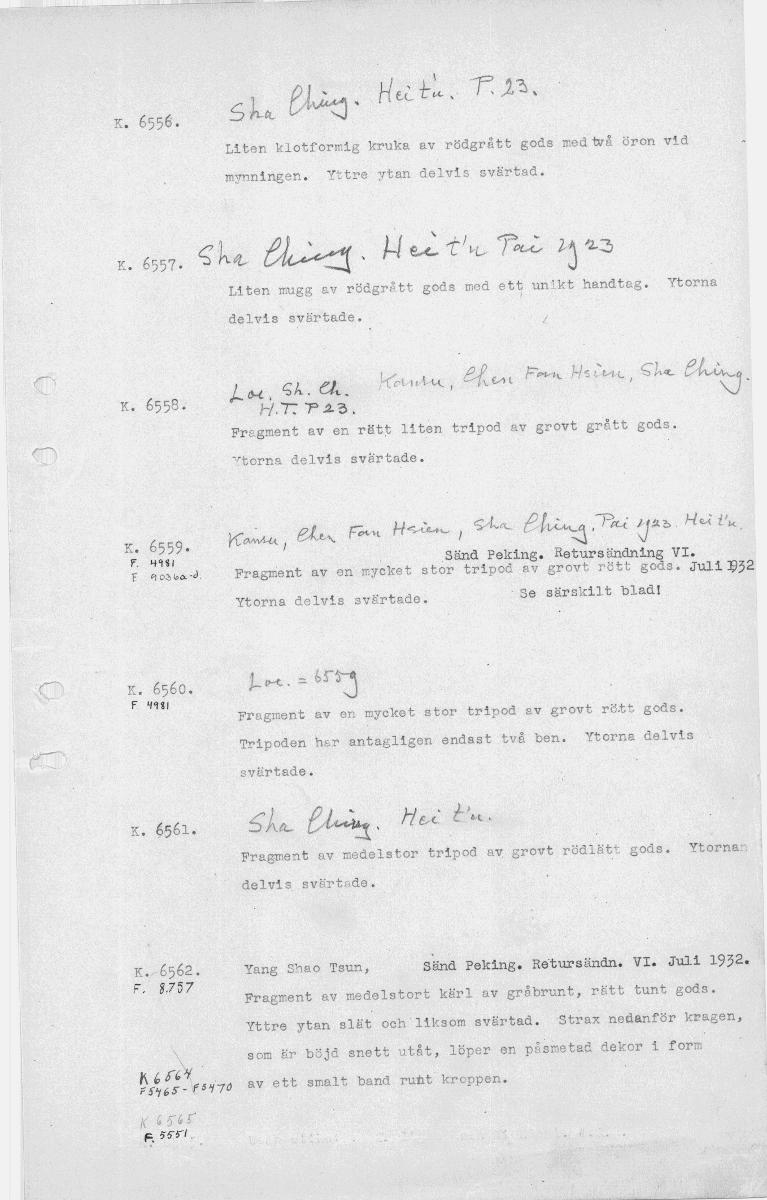 Sha Ching. Hei t'u. P. 23.
K. 6556.
Liten klotformig kruka av rödgrått gods med två öron vid
mynningen. Yttre ytan delvis svärtad.
K. 6557. Sha Ching. Hei t'u Pai 1923
Liten mugg av rödgrått gods med ett unikt handtag. Ytorna
delvis svärtade.
Loc. Sh. Ch. Kansu, Chen Fan Hsien, Sha Ching.
K. 6558. H.T. P 23.
Fragment av en rätt liten tripod av grovt grått gods.
Ytorna delvis svärtade.
Kansu, Chen Fan Hsien, Sha Ching. Pai 1923. Hei t'u.
K. 6559.
Sänd Peking. Retursändning VI.
F. 4981
Fragment av en mycket stor tripod av grovt rött gods. Juli 1932
F 9036a-d.
Ytorna delvis svärtade. Se särskilt blad!
K. 6560. Loc. = 6559
F 4981
Fragment av en mycket stor tripod av grovt rött gods.
Tripoden har antagligen endast två ben. Ytorna delvis
svärtade.
K. 6561. Sha Ching. Hei t'u.
Fragment av medelstor tripod av grovt rödlätt gods. Ytornan
delvis svärtade.
K. 6562. Yang Shao Tsun, Sänd Peking. Retursändn. VI. Juli 1932.
F. 8757
Fragment av medelstort kärl av gråbrunt, rätt tunt gods.
Yttre ytan slät och liksom svärtad. Strax nedanför kragen,
som är böjd snett utåt, löper en påsmetad dekor i form
K 6564
av ett smalt band runt kroppen.
F 5465 - F 5470
K 6565
F. 5551